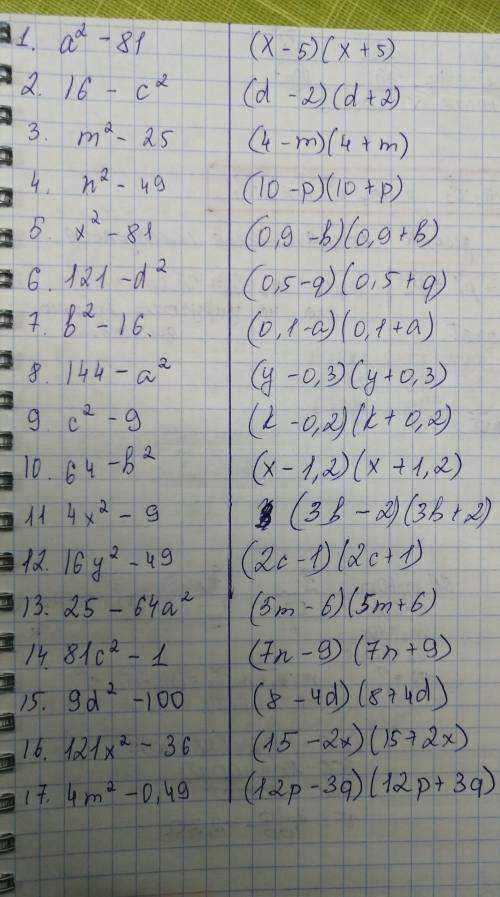 1. a² - 81 (x - 5)(x + 5)
2. 16 - c² (d - 2)(d + 2)
3. m² - 25 (4 - m)(4 + m)
4. n² - 49 (10 - p)(10 + p)
5 x² - 81 (0,9 - b)(0,9 + b)
6. 121 - d² (0,5 - q)(0,5 + q)
7. b² - 16. (0,1 - a)(0,1 + a)
8. 144 - a² (y - 0,3)(y + 0,3)
9 c² - 9 (k - 0,2)(k + 0,2)
10. 64 - b² (x - 1,2)(x + 1,2)
11 4x² - 9 (3b - 2)(3b + 2)
12. 16y² - 49 (2c - 1)(2c + 1)
13. 25 - 64a² (5m - 6)(5m + 6)
14. 81c² - 1 (7n - 9)(7n + 9)
15. 9d² - 100 (8 - 4d)(8 + 4d)
16. 121x² - 36 (15 - 2x)(15 + 2x)
17. 4m² - 0,49 (12p - 3q)(12p + 3q)